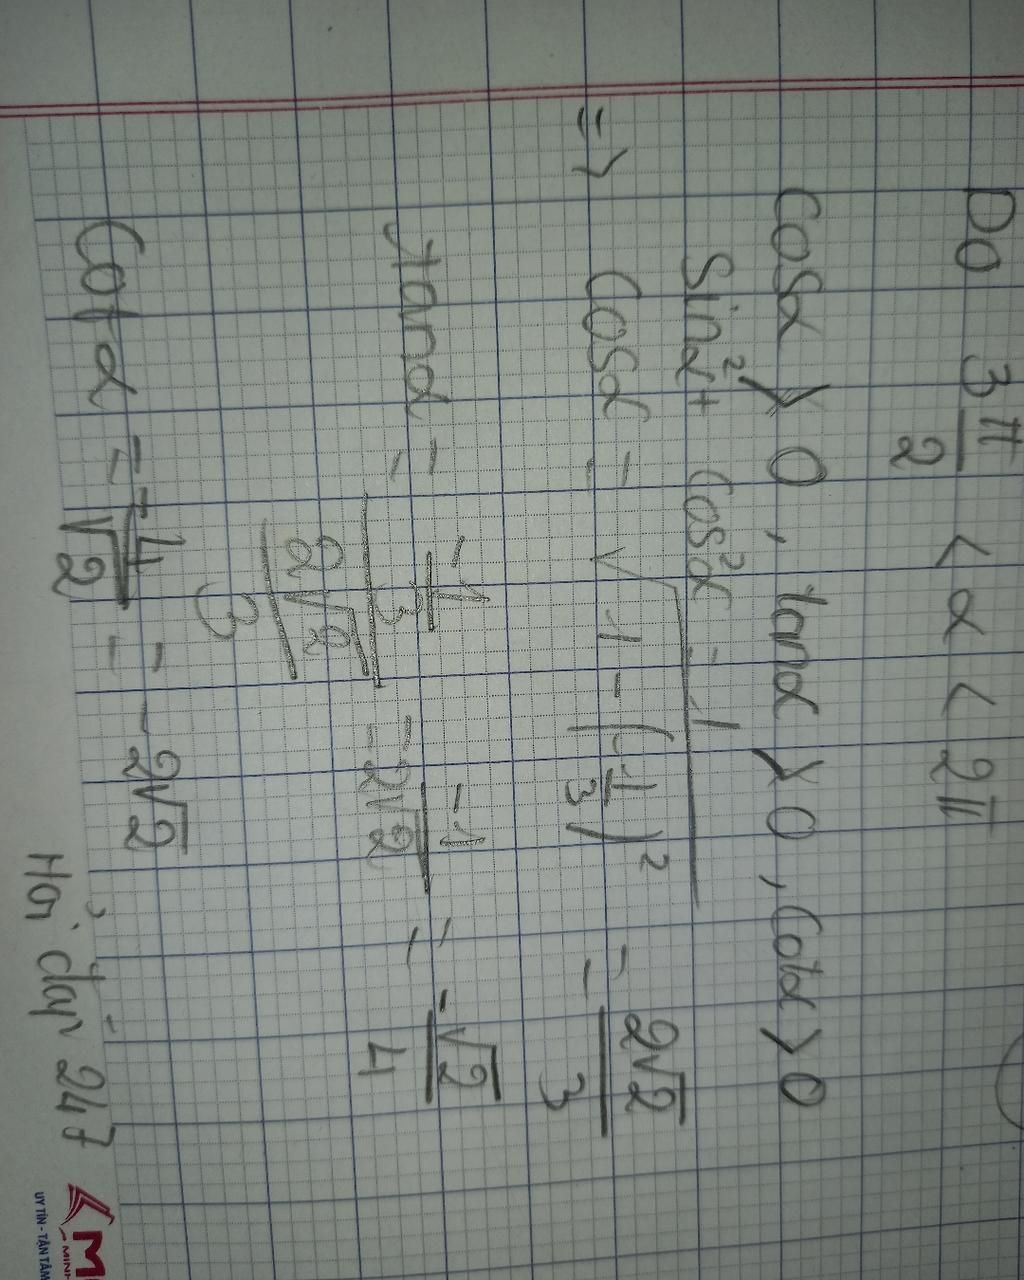 Do 3π/2 < α < 2π
Cosα > 0, tanα > 0, Cotα > 0
Sin²α + Cos²α = 1
=> Cosα = √(1 - (1/3)²) = 2√2/3
tanα = (-1/3)/(2√2/3) = -1/(2√2) = -√2/4
Cot α = -4/√2 = -2√2
Hỏi đáp 247
UY TÍN - TẬN TÂM